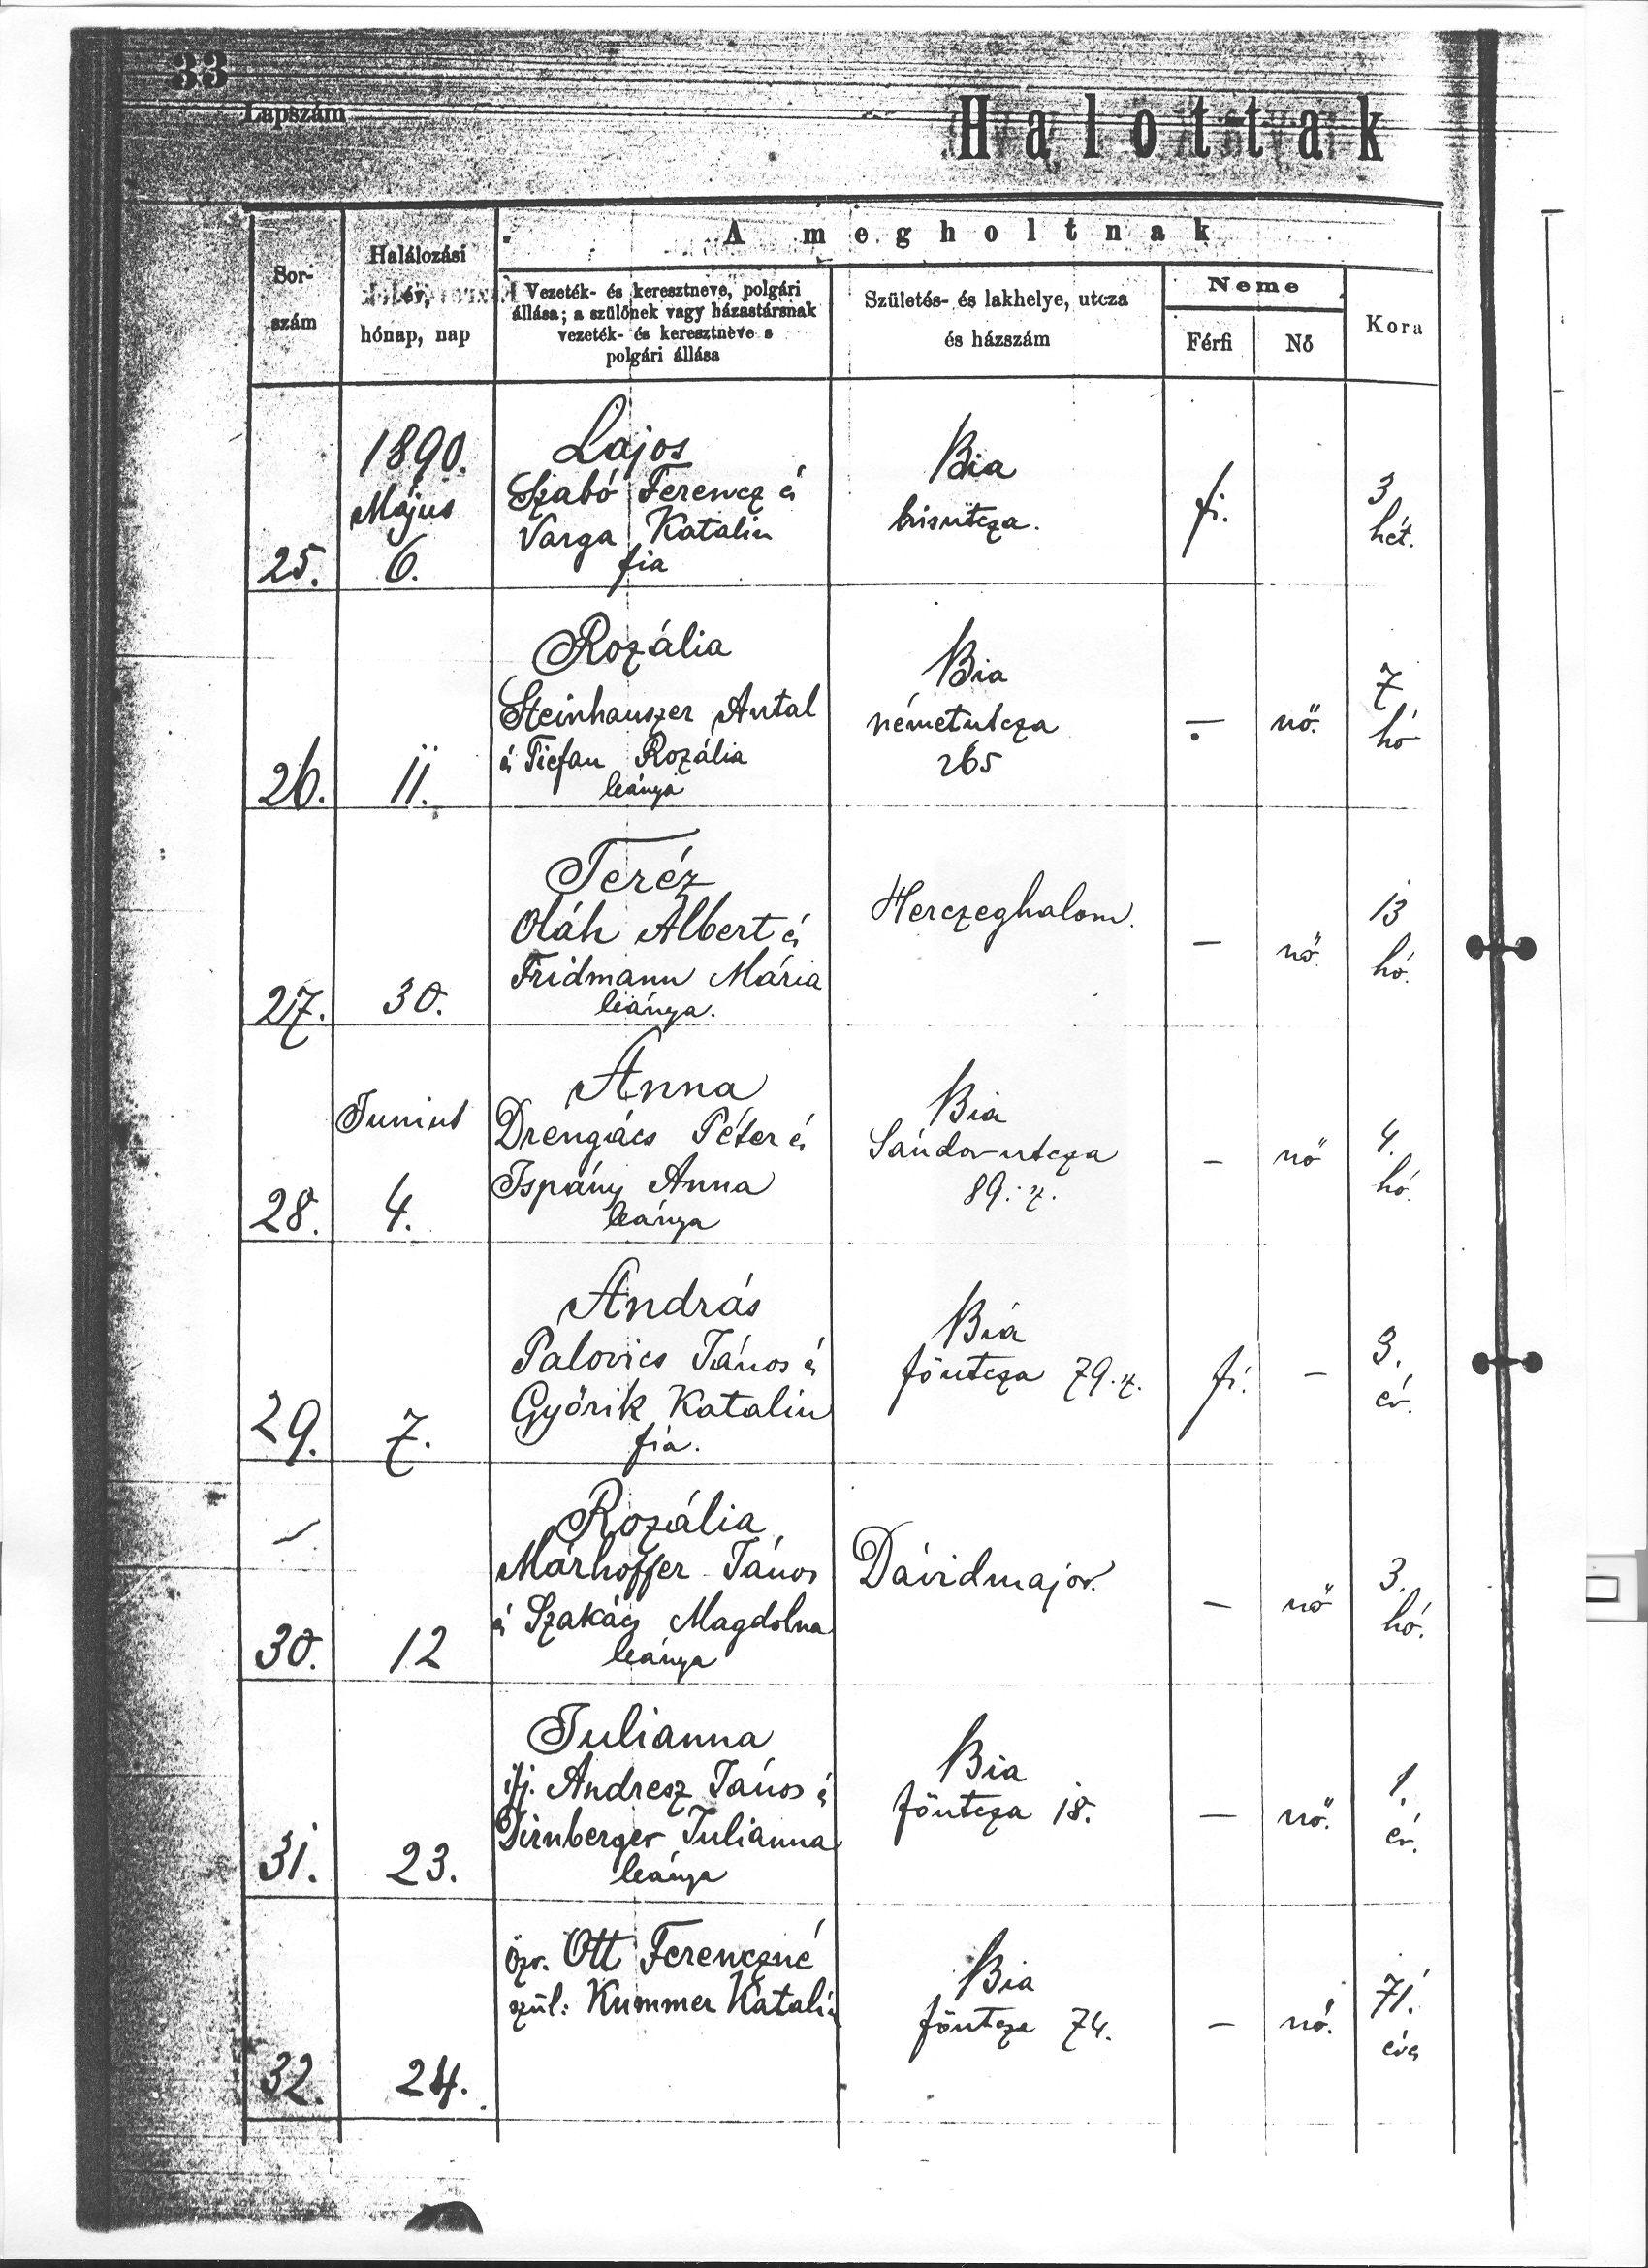 33
Lapszám
Halottak
A megholtnak
Sor-
szám
Halálozási
év,
hónap, nap
Vezeték- és keresztneve, polgári
állása; a szülőnek vagy házastársnak
vezeték- és keresztneve s
polgári állása
Születés- és lakhelye, utcza
és házszám
Neme
Férfi
Nő
Kora
1890.
Május
25.
6.
Lajos
Szabó Ferencz és
Varga Katalin
fia
Bia
fi.
3
hét.
26.
11.
Rozália
Steinhauszer Antal
és Tiefan Rozália
leánya
Bia
németutcza
265
—
nő.
7
hó
27.
30.
Teréz
Oláh Albert és
Fridmann Mária
leánya.
Herczeghalom.
—
nő.
13
hó.
Junius
28.
4.
Anna
Drengács Péter és
Ispány Anna
leánya
Bia
Sándor utcza
89. z.
—
nő
4.
hó.
29.
7.
András
Palovics János és
Győrik Katalin
fia.
Bia
főutcza 79. z.
fi.
—
3.
év.
30.
12
Rozália
Márhoffer János
és Szakács Magdolna
leánya
Dávidmajor.
—
nő
3.
hó.
31.
23.
Julianna
ifj. Andresz János és
Dirnberger Julianna
leánya
Bia
főutcza 18.
—
nő.
1.
év.
32.
24.
özv. Ott Ferenczné
szül: Kummer Katalin
Bia
főutcza 74.
—
nő.
71.
éves